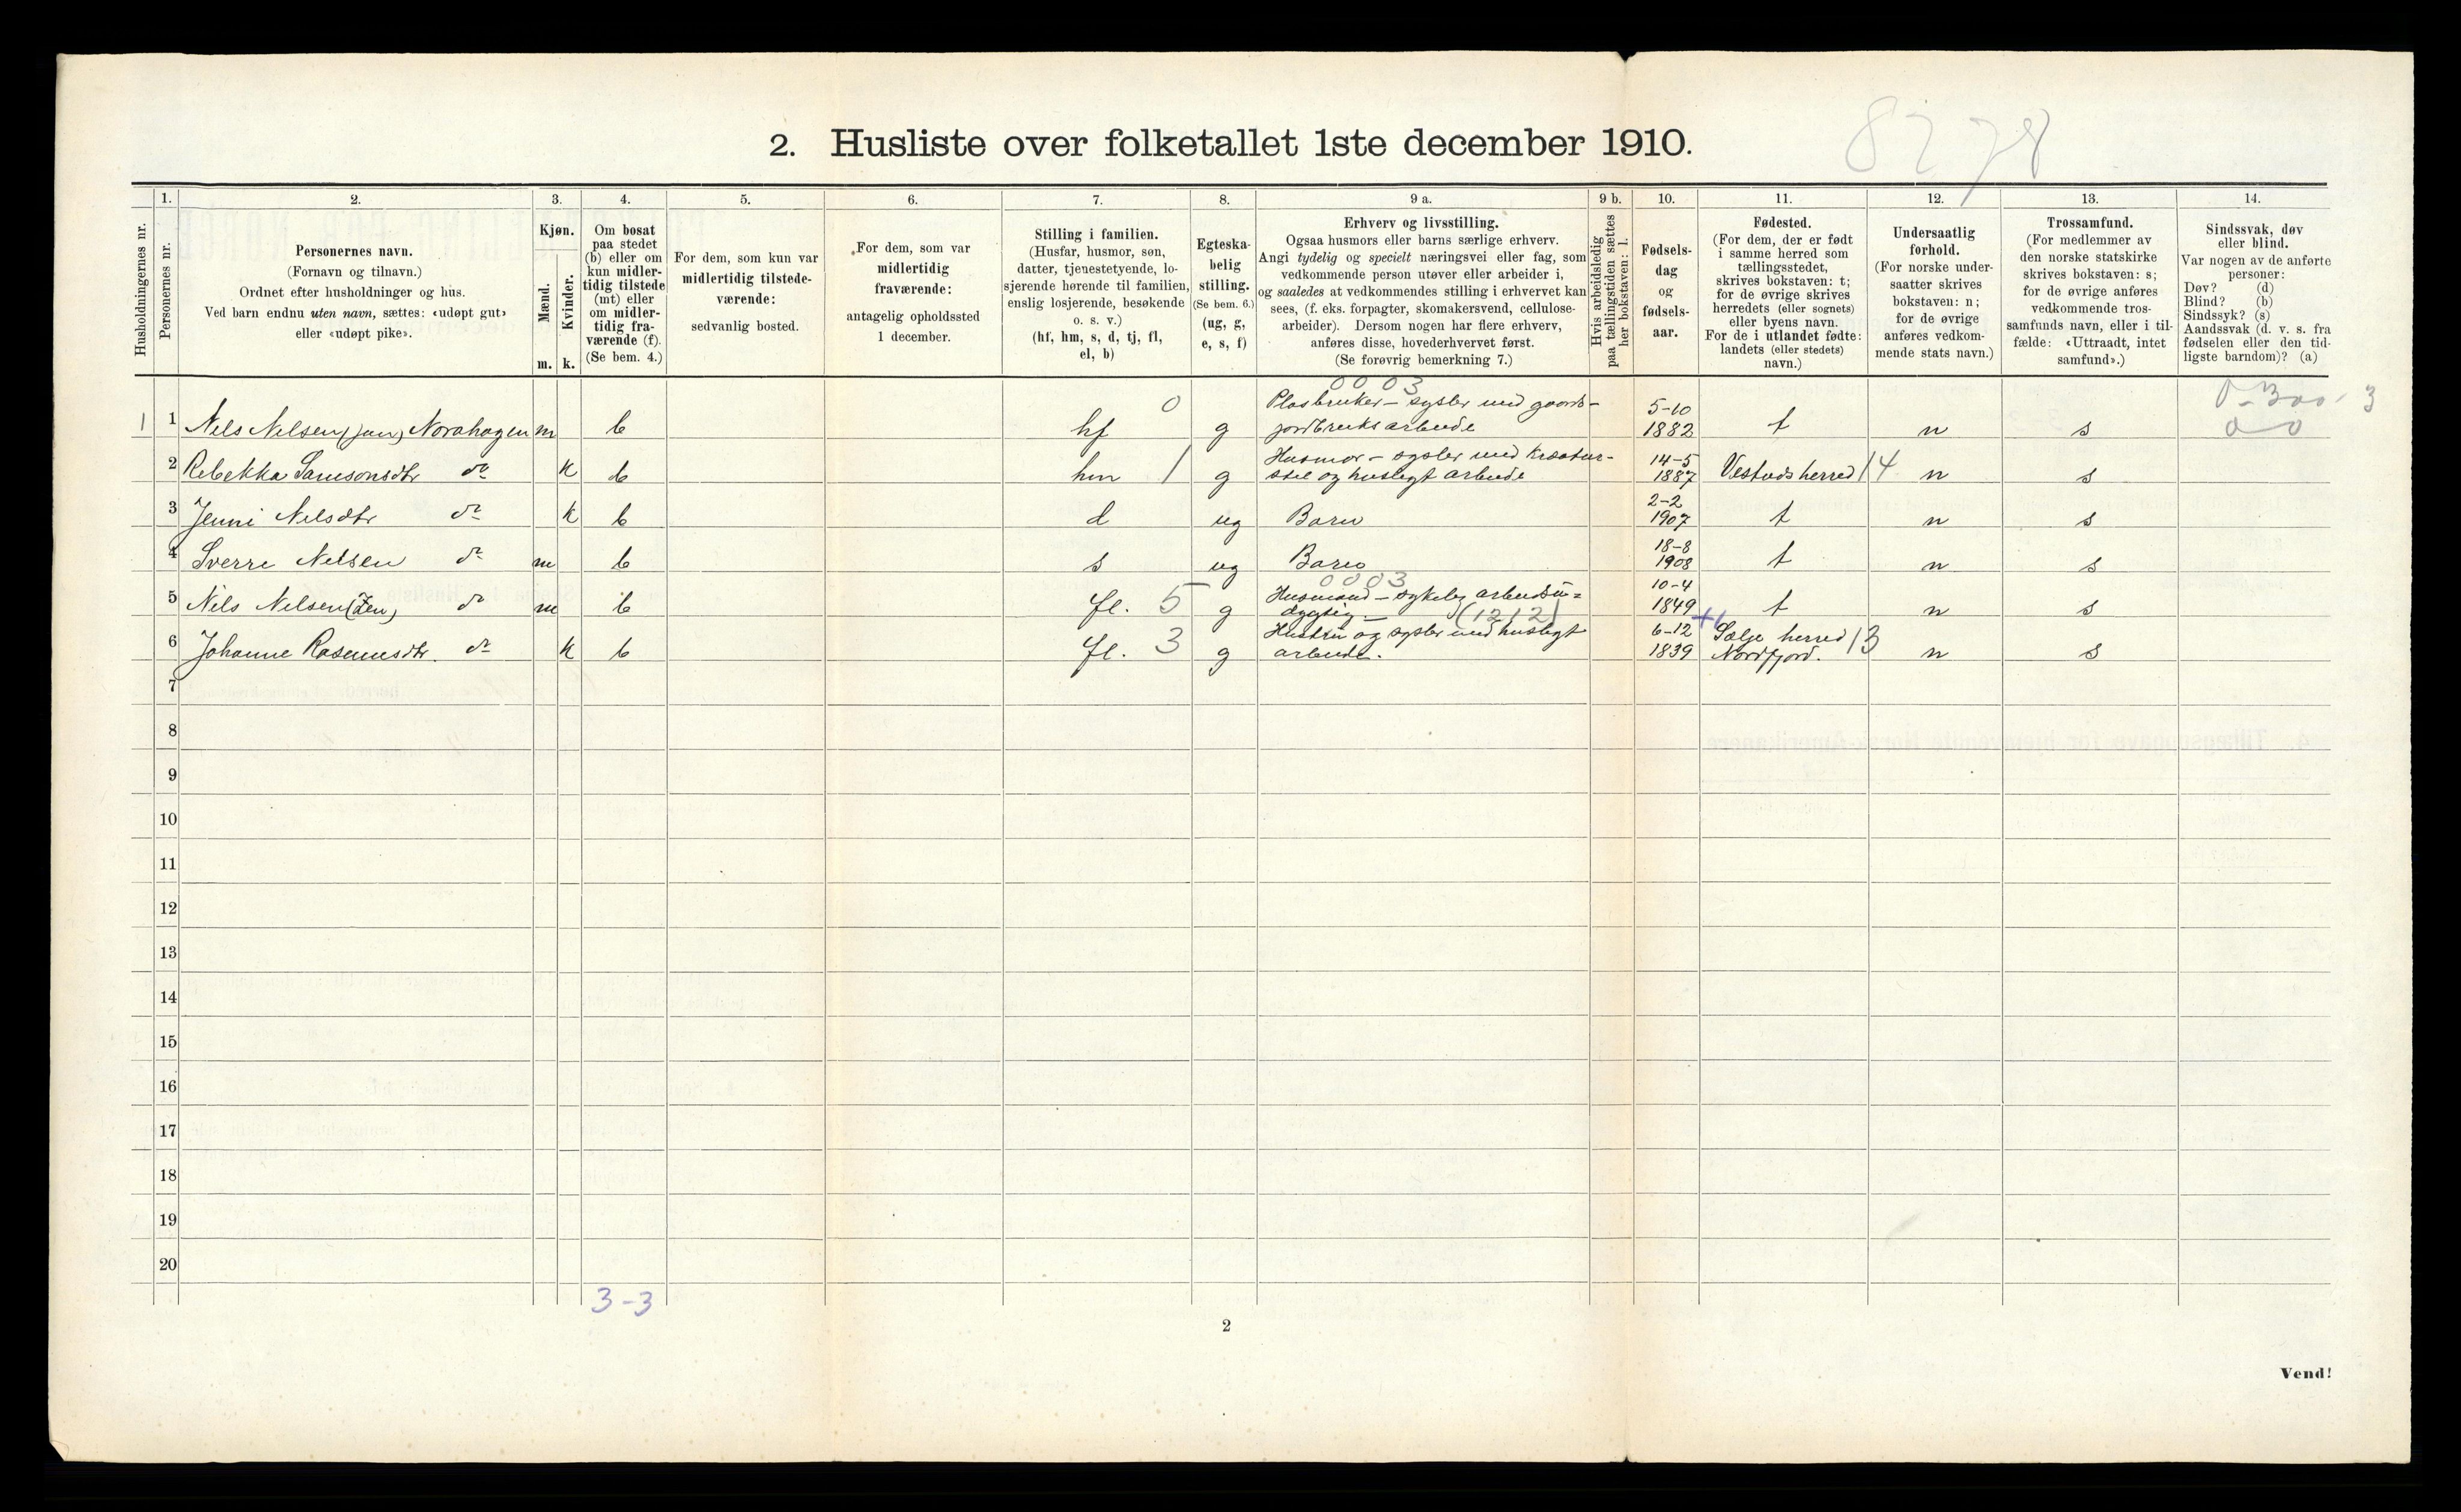 8278
2. Husliste over folketallet 1ste december 1910.
Husholdningernes nr.
1.
Personernes nr.
2.
Personernes navn.
(Fornavn og tilnavn.)
Ordnet efter husholdninger og hus.
Ved barn endnu uten navn, sættes: «udøpt gut»
eller «udøpt pike».
3.
Kjøn.
Mænd.
Kvinder.
m. k.
4.
Om bosat
paa stedet
(b) eller om
kun midler-
tidig tilstede
(mt) eller
om midler-
tidig fra-
værende (f).
(Se bem. 4.)
5.
For dem, som kun var
midlertidig tilstede-
værende:
sedvanlig bosted.
6.
For dem, som var
midlertidig
fraværende:
antagelig opholdssted
1 december.
7.
Stilling i familien.
(Husfar, husmor, søn,
datter, tjenestetyende, lo-
sjerende hørende til familien,
enslig losjerende, besøkende
o. s. v.)
(hf, hm, s, d, tj, fl,
el, b)
8.
Egteska-
belig
stilling.
(Se bem. 6.)
(ug, g,
e, s, f)
9 a.
Erhverv og livsstilling.
Ogsaa husmors eller barns særlige erhverv.
Angi tydelig og specielt næringsvei eller fag, som
vedkommende person utøver eller arbeider i,
og saaledes at vedkommendes stilling i erhvervet kan
sees, (f. eks. forpagter, skomakersvend, cellulose-
arbeider). Dersom nogen har flere erhverv,
anføres disse, hovederhvervet først.
(Se forøvrig bemerkning 7.)
9 b.
Hvis arbeidsledig
paa tællingstiden sættes
her bokstaven: l.
10.
Fødsels-
dag
og
fødsels-
aar.
11.
Fødested.
(For dem, der er født
i samme herred som
tællingsstedet,
skrives bokstaven: t;
for de øvrige skrives
herredets (eller sognets)
eller byens navn.
For de i utlandet fødte:
landets (eller stedets)
navn.)
12.
Undersaatlig
forhold.
(For norske under-
saatter skrives
bokstaven: n;
for de øvrige
anføres vedkom-
mende stats navn.)
13.
Trossamfund.
(For medlemmer av
den norske statskirke
skrives bokstaven: s;
for de øvrige anføres
vedkommende tros-
samfunds navn, eller i til-
fælde: «Uttraadt, intet
samfund».)
14.
Sindssvak, døv
eller blind.
Var nogen av de anførte
personer:
Døv? (d)
Blind? (b)
Sindssyk? (s)
Aandssvak (d. v. s. fra
fødselen eller den tid-
ligste barndom)? (a)
0003
0 Plasbruker – sysler med gaards- 5-10
1 1 Nels Nelsen (jun) Norahagen m b hf g jordbruksarbeide 1882 t n s
Husmor – sysler med kreatur- 14-5
2 Rebekka Samsonsdtr do k b hm 1 g stel og husligt arbeide 1887 Vestnes herred 14 n s
2-2
3 Jenni Nelsdtr do k b d ug Barn 1907 t n s
18-8
4 Sverre Nelsen do m b s ug Barn 1908 t n s
0003
Husmand – sykelig arbeidsu= 10-4
5 Nils Nelsen (Zen) do m b fl. 5 g dygtig – (1212) 1849 t n s
Hustru og sysler med husligt 6-12 Selje herred
6 Johanne Rasmusdtr. do k b fl. 3 g arbeide. 1839 Nordfjord. 13 n s
7
8
9
10
11
12
13
14
15
16
17
18
19
20
3-3
2
Vend!